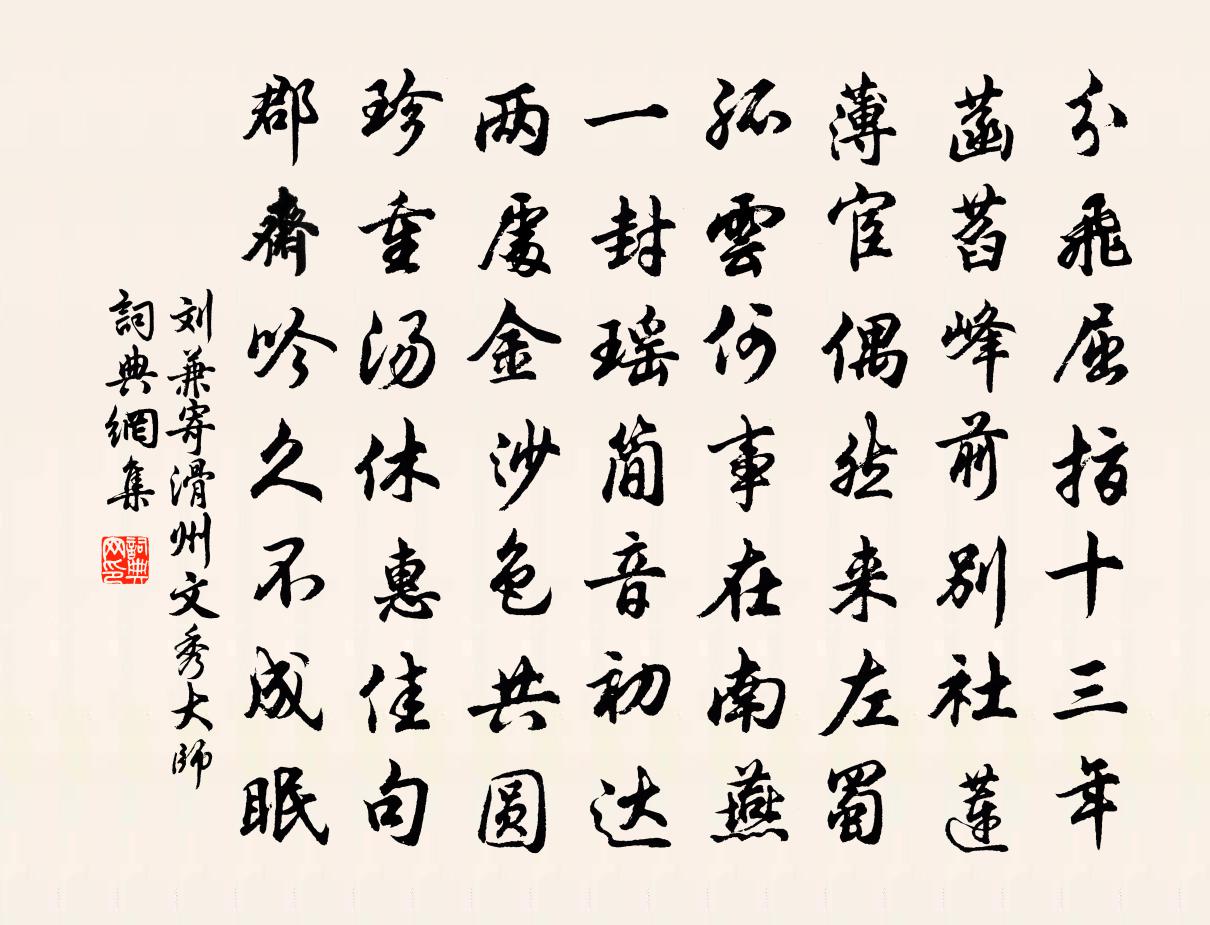 分飛屈指十三年
菡萏峰前別社蓮
薄宦偶然来左蜀
孤雲何事在南燕
一封瑶简音初达
两處金沙色共圆
珍重汤休惠佳句
郡齋吟久不成眠
刘兼寄滑州文秀大師
詞典網集
詞典网印